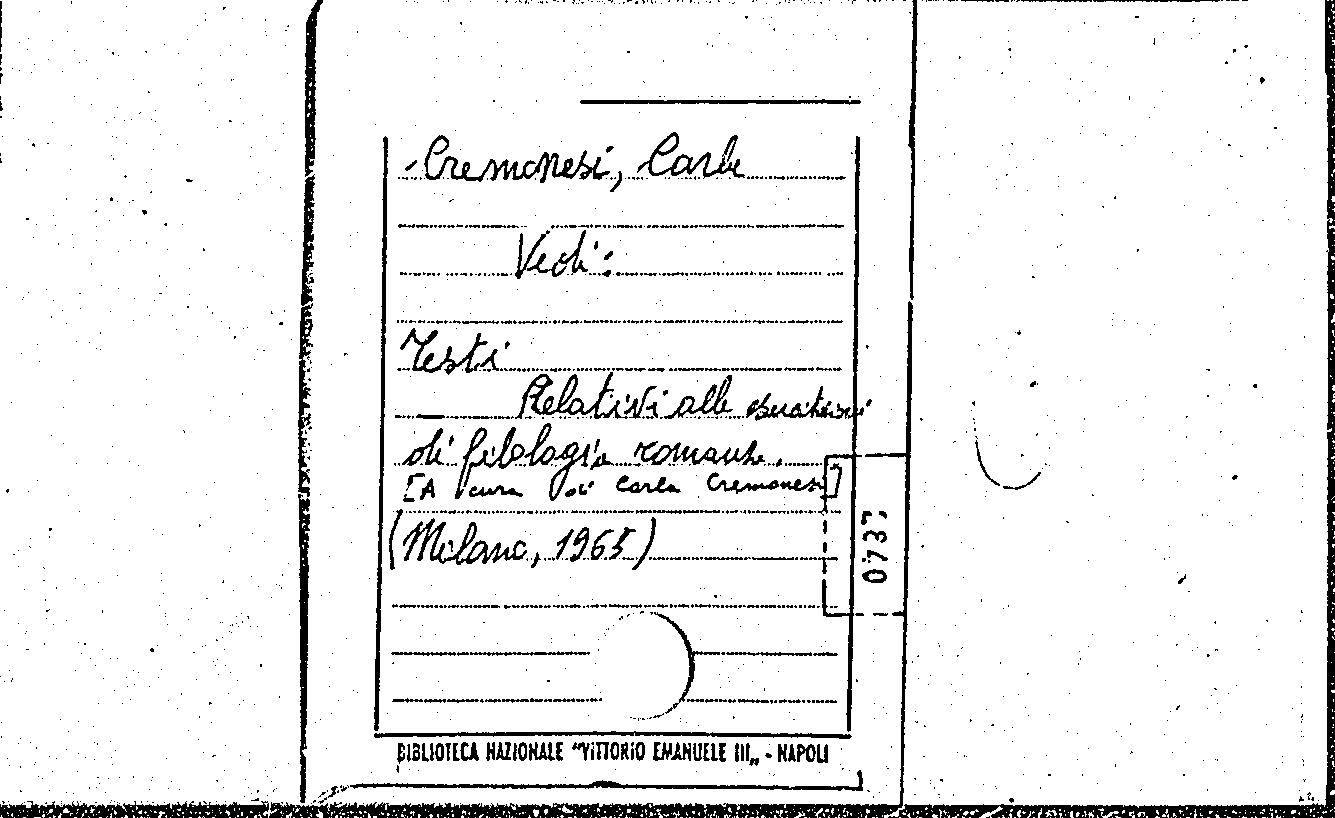 Cremonesi, Carla
Vedi:
Testi
Relativi alle esercitazioni
di filologia romanza.
[A cura di Carla Cremonesi]
(Milano, 1965)
0737
BIBLIOTECA NAZIONALE "VITTORIO EMANUELE III„ - NAPOLI